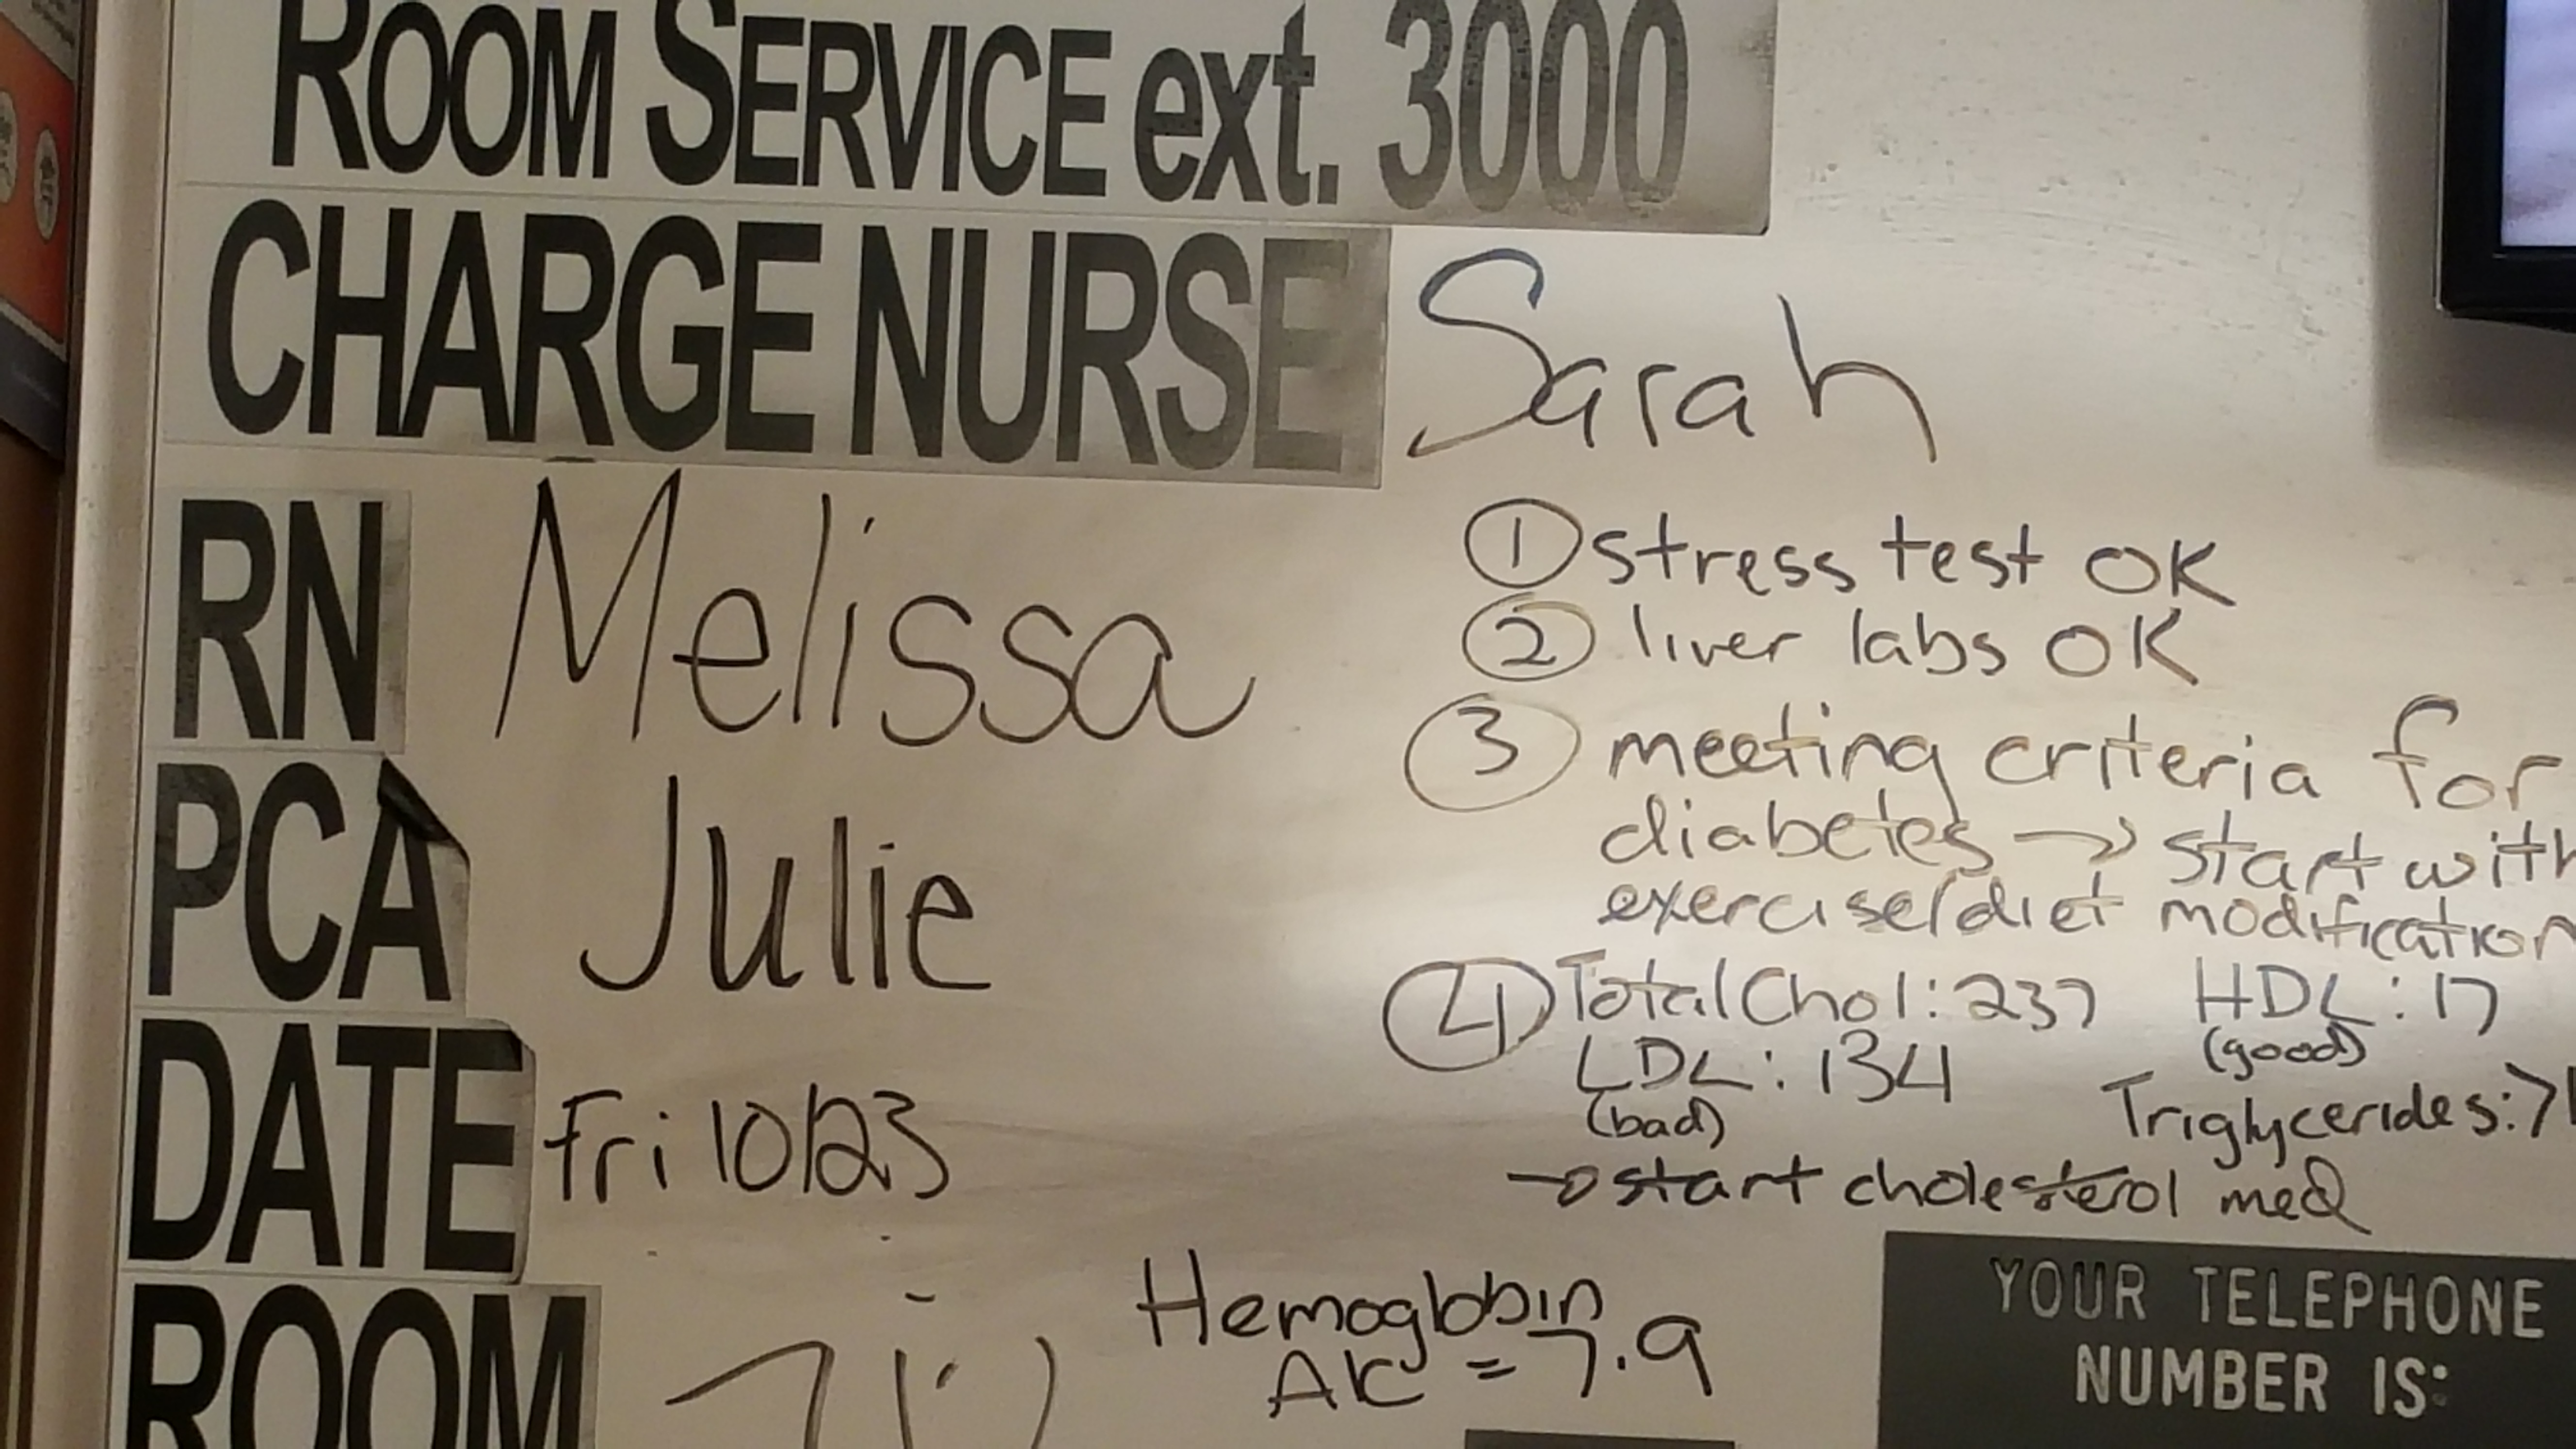 ROOM SERVICE ext. 3000
CHARGE NURSE Sarah
RN Melissa
① stress test OK
② liver labs OK
③ meeting criteria for
diabetes → start with
exercise/diet modification
PCA Julie
④ Total Chol: 237 HDL: 17
(good)
LDL: 134
(bad)
Triglycerides: >1
→ start cholesterol med
DATE Fri 10/23
Hemoglobin
A1C = 7.9
ROOM
YOUR TELEPHONE
NUMBER IS: